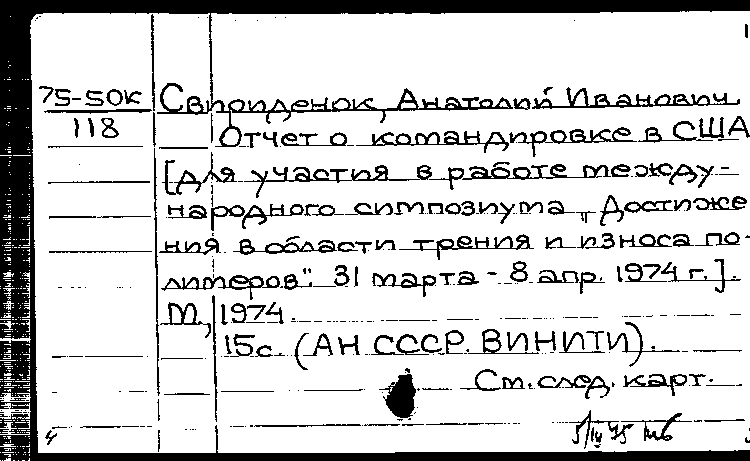 1
75-50к Свириденок, Анатолий Иванович
118 Отчет о командировке в США
[для участия в работе между-
народного симпозиума „Достиже
ния в области трения и износа по-
лимеров". 31 марта - 8 апр. 1974 г.].
М., 1974.
15с. (АН СССР. ВИНИТИ).
См. след. карт.
4 5/IV 75